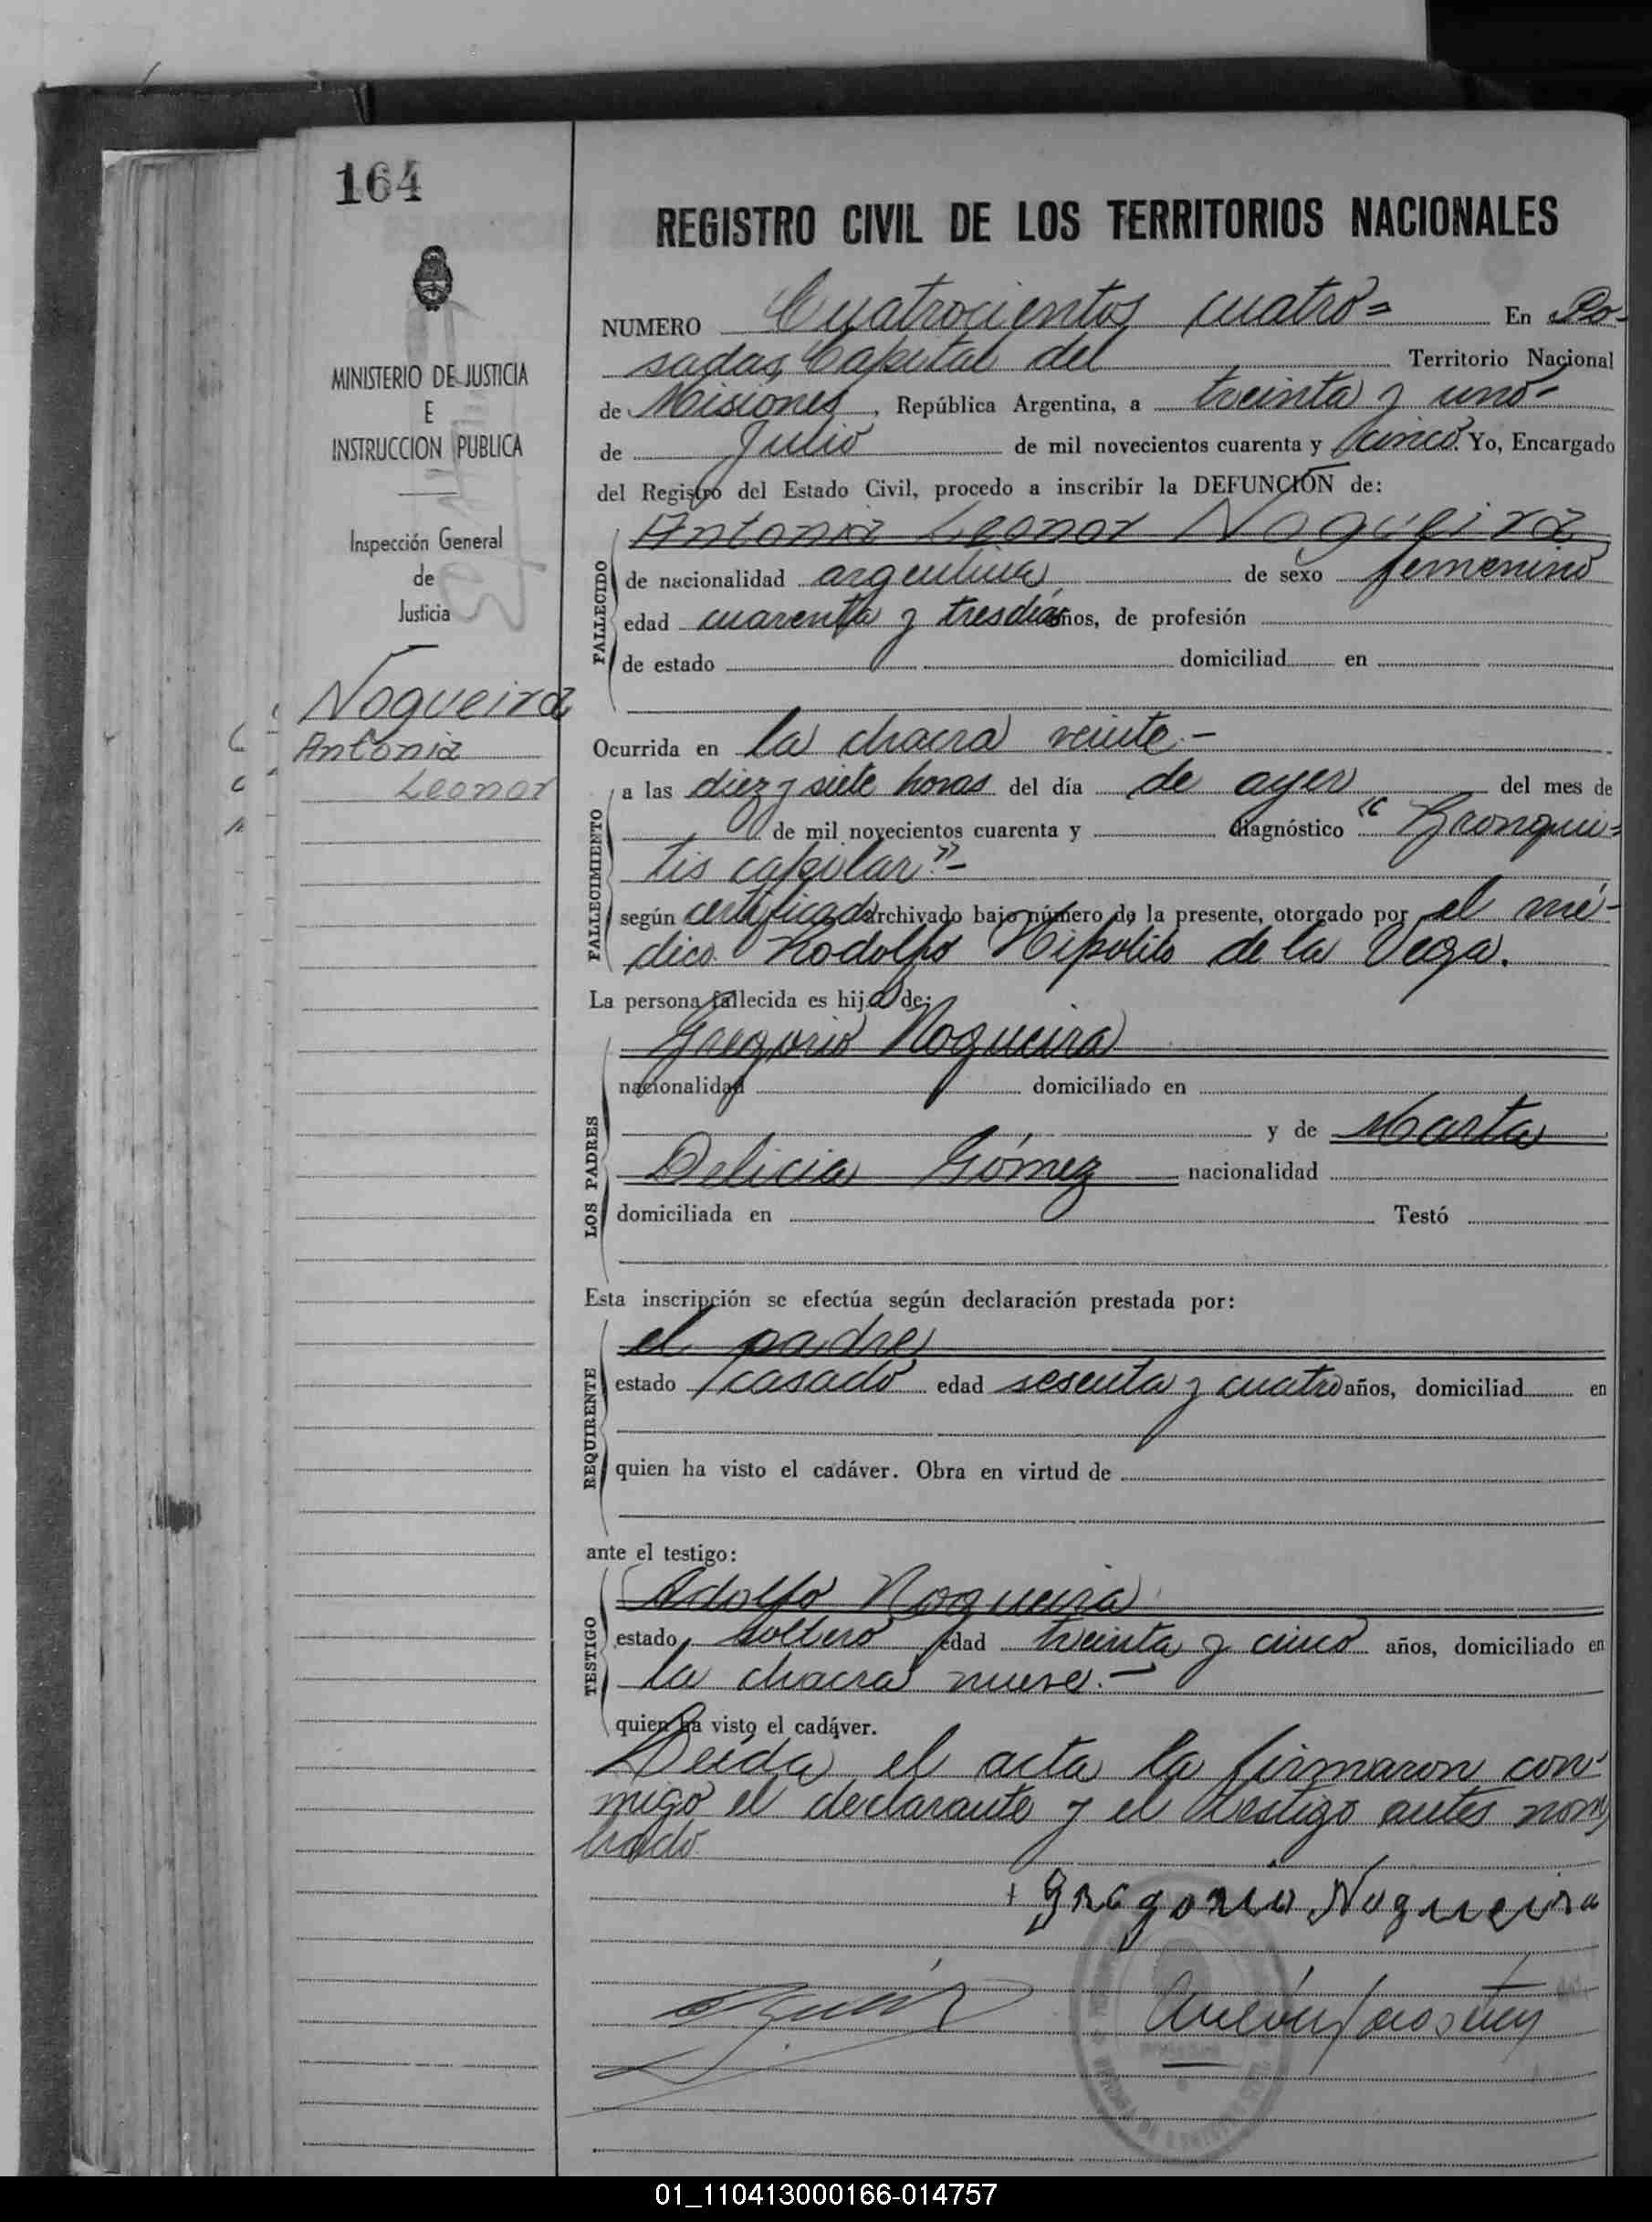 164
MINISTERIO DE JUSTICIA
E
INSTRUCCION PUBLICA
Inspección General
de
Justicia
Nogueira
Antonia
Leonor
REGISTRO CIVIL DE LOS TERRITORIOS NACIONALES
NUMERO Cuatrocientos cuatro= En Po-
sadas, Capital del Territorio Nacional
de Misiones, República Argentina, a treinta y uno-
de Julio de mil novecientos cuarenta y cinco. Yo, Encargado
del Registro del Estado Civil, procedo a inscribir la DEFUNCIÓN de:
Antonia Leonor Nogueira
FALLECIDO
de nacionalidad argentina de sexo femenino
edad cuarenta y tres días años, de profesión
de estado domiciliad en
Ocurrida en la chacra veinte.-
FALLECIMIENTO
a las diez y siete horas del día de ayer del mes de
de mil novecientos cuarenta y diagnóstico "Bronqui-
tis capilar".-
según certificado archivado bajo número de la presente, otorgado por el mé-
dico Rodolfo Hipólito de la Vega.
La persona fallecida es hija de:
LOS PADRES
Gregorio Nogueira
nacionalidad domiciliado en
y de Marta
Delicia Gómez nacionalidad
domiciliada en Testó
Esta inscripción se efectúa según declaración prestada por:
REQUIRENTE
el padre
estado casado edad sesenta y cuatro años, domiciliad en
quien ha visto el cadáver. Obra en virtud de
ante el testigo:
TESTIGO
Adolfo Nogueira
estado soltero edad treinta y cinco años, domiciliado en
la chacra nueve.-
quien ha visto el cadáver.
Leída el acta la firmaron con-
migo el declarante y el testigo antes nom
brado.
Gregorio Nogueira
01_110413000166-014757